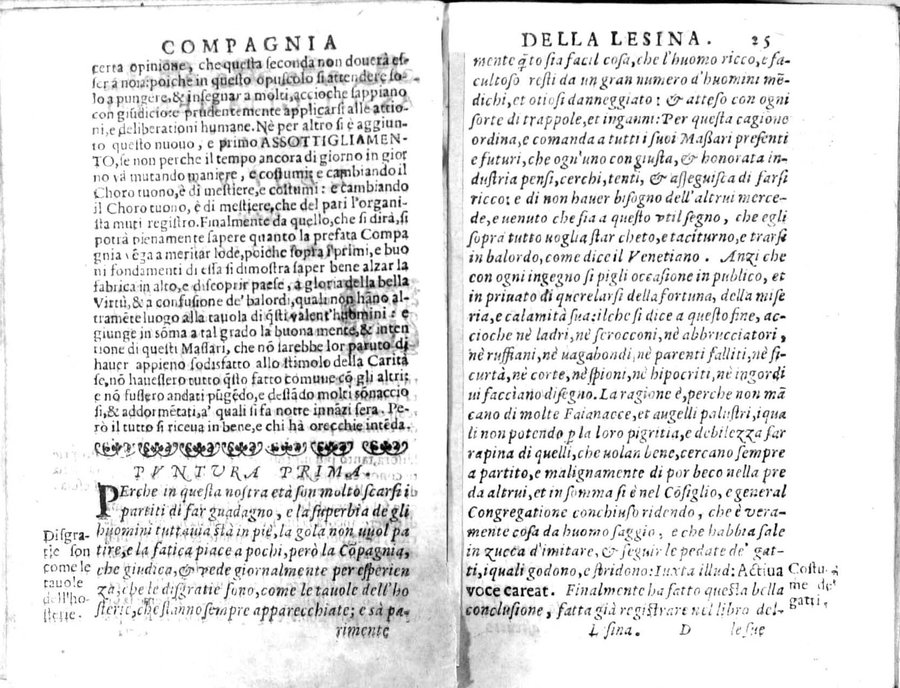 COMPAGNIA
certa opinione, che questa seconda non douerà es-
ser à noia: poiche in questo opuscolo si attende so-
lo a pungere, & insegnar a molti, accioche sappiano
con giudicio: e prudentemente applicarsi alle attio-
ni, e deliberationi humane. Nè per altro si è aggiun-
to questo nuouo, e primo ASSOTTIGLIAMEN-
TO, se non perche il tempo ancora di giorno in gior
no và mutando maniere, e costumi: e cambiando il
Choro tuono, è di mestiere, e costumi: e cambiando
il Choro tuono, è di mestiere, che del pari l'organi-
sta muti registro. Finalmente da quello, che si dirà, si
potrà pienamente sapere quanto la prefata Compa
gnia vẽga a meritar lode, poiche sopra i primi, e buo
ni fondamenti di essa si dimostra saper bene alzar la
fabrica in alto, e discoprir paese, à gloria della bella
Virtù, & à confusione de' balordi, quali non hãno al-
tramẽte luogo alla tauola di q̃sti valent'huomini: e
giunge in sõma a tal grado la buona mente, & inten
tione di questi Massari, che nõ sarebbe lor paruto di
hauer appieno sodisfatto allo stimolo della Carità
se, nõ hauessero tutto q̃sto fatto comune cõ gli altri:
e nõ fussero andati pugẽdo, e destãdo molti sonaccio
si, & addormẽtati, a' quali si fa notte innãzi sera. Pe-
rò il tutto si riceua in bene, e chi hà orecchie intẽda.
PVNTVRA PRIMA.
PErche in questa nostra età son molto scarsi i
partiti di far guadagno, e la superbia de gli
huomini tuttauia stà in piè, la gola non vuol pa
tire, e la fatica piace a pochi, però la Cõpagnia,
che giudica, & vede giornalmente per esperien
za, che le disgratie sono, come le tauole dell'ho
sterie, che stanno sempre apparecchiate; e sà pa-
rimente
Disgra-
tie son
come le
tauole
dell'ho-
sterie.
DELLA LESINA. 25
mente q̃to sia facil cosa, che l'huomo ricco, e fa-
cultoso resti da un gran numero d'huomini mẽ-
dichi, et otiosi danneggiato: & atteso con ogni
sorte di trappole, et inganni: Per questa cagione
ordina, e comanda a tutti i suoi Massari presenti
e futuri, che ogn'uno con giusta, & honorata in-
dustria pensi, cerchi, tenti, & asseguisca di farsi
ricco: e di non hauer bisogno dell'altrui merce-
de, e uenuto che sia a questo vtil segno, che egli
sopra tutto uoglia star cheto, e taciturno, e trarsi
in balordo, come dice il Venetiano. Anzi che
con ogni ingegno si pigli occasione in publico, et
in priuato di querelarsi della fortuna, della mise
ria, e calamità sua: ilche si dice a questo fine, ac-
cioche nè ladri, nè scrocconi, nè abbrucciatori,
nè ruffiani, nè uagabondi, nè parenti falliti, nè si-
curtà, nè corte, nè spioni, nè hipocriti, nè ingordi
ui facciano disegno. La ragione è, perche non mã
cano di molte Faianacce, et augelli palustri, iqua
li non potendo p la loro pigritia, e debilezza far
rapina di quelli, che uolan bene, cercano sempre
a partito, e malignamente di por beco nella pre
da altrui, et in somma si è nel Cõsiglio, e general
Congregatione conchiuso ridendo, che è vera-
mente cosa da huomo saggio, e che habbia sale
in zucca d'imitare, & seguir le pedate de' gat-
ti, iquali godono, e stridono: Iuxta illud: Actiua
voce careat. Finalmente ha fatto questa bella
conclusione, fatta già registrare nel libro del-
Costu-
me de'
gatti.
Lesina. D le sue